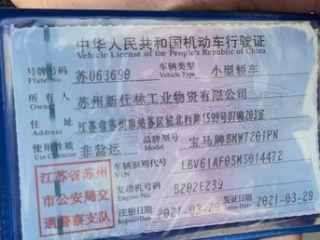 中华人民共和国机动车行驶证
Vehicle License of the People's Republic of China
号牌号码 苏U63690 车辆类型 小型轿车
Plate No. Vehicle Type
所有人 苏州新仕林工业物资有限公司
Owner
住址 江苏省苏州市
Address
使用性质 非营运 品牌型号 宝马牌BMW7201PN
Use Character Model
车辆识别代号 LBV61AF05MS014472
VIN
江苏省苏州
市公安局交
通警察支队
发动机号码 B202E239
Engine No.
注册日期 2021-03-29 发证日期 2021-03-29
Register Date Issue Date